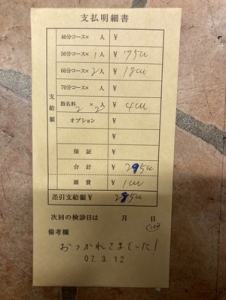 支払明細書
40分コース× 人 ¥
50分コース× 1 人 ¥ 75
60分コース× 2 人 ¥ 18
70分コース× 人 ¥
指名料 2 × 2 ¥ 4
オプション ¥
¥
¥
保証 ¥
合計 ¥ 295
雑費 ¥ 1
差引支給額 ¥ 285
支給額
次回の検診日は 月 日
備考欄
おつかれさまでした!
07.3.12